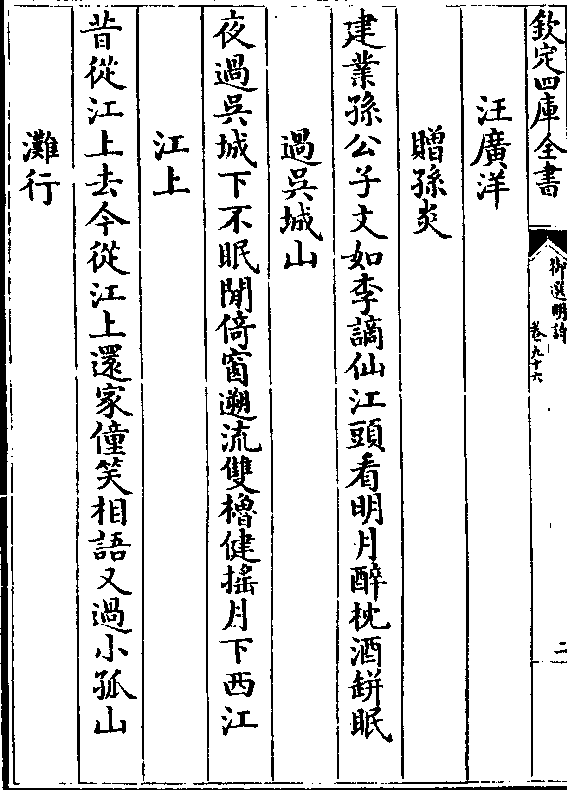 欽定四庫全書
御選明詩
卷九十六
二
汪廣洋
贈孫炎
建業孫公子文如李謫仙江頭看明月醉枕酒缾眠
過吳城山
夜過吳城下不眠閒倚窗遡流雙櫓健搖月下西江
江上
昔從江上去今從江上還家僮笑相語又過小孤山
灘行